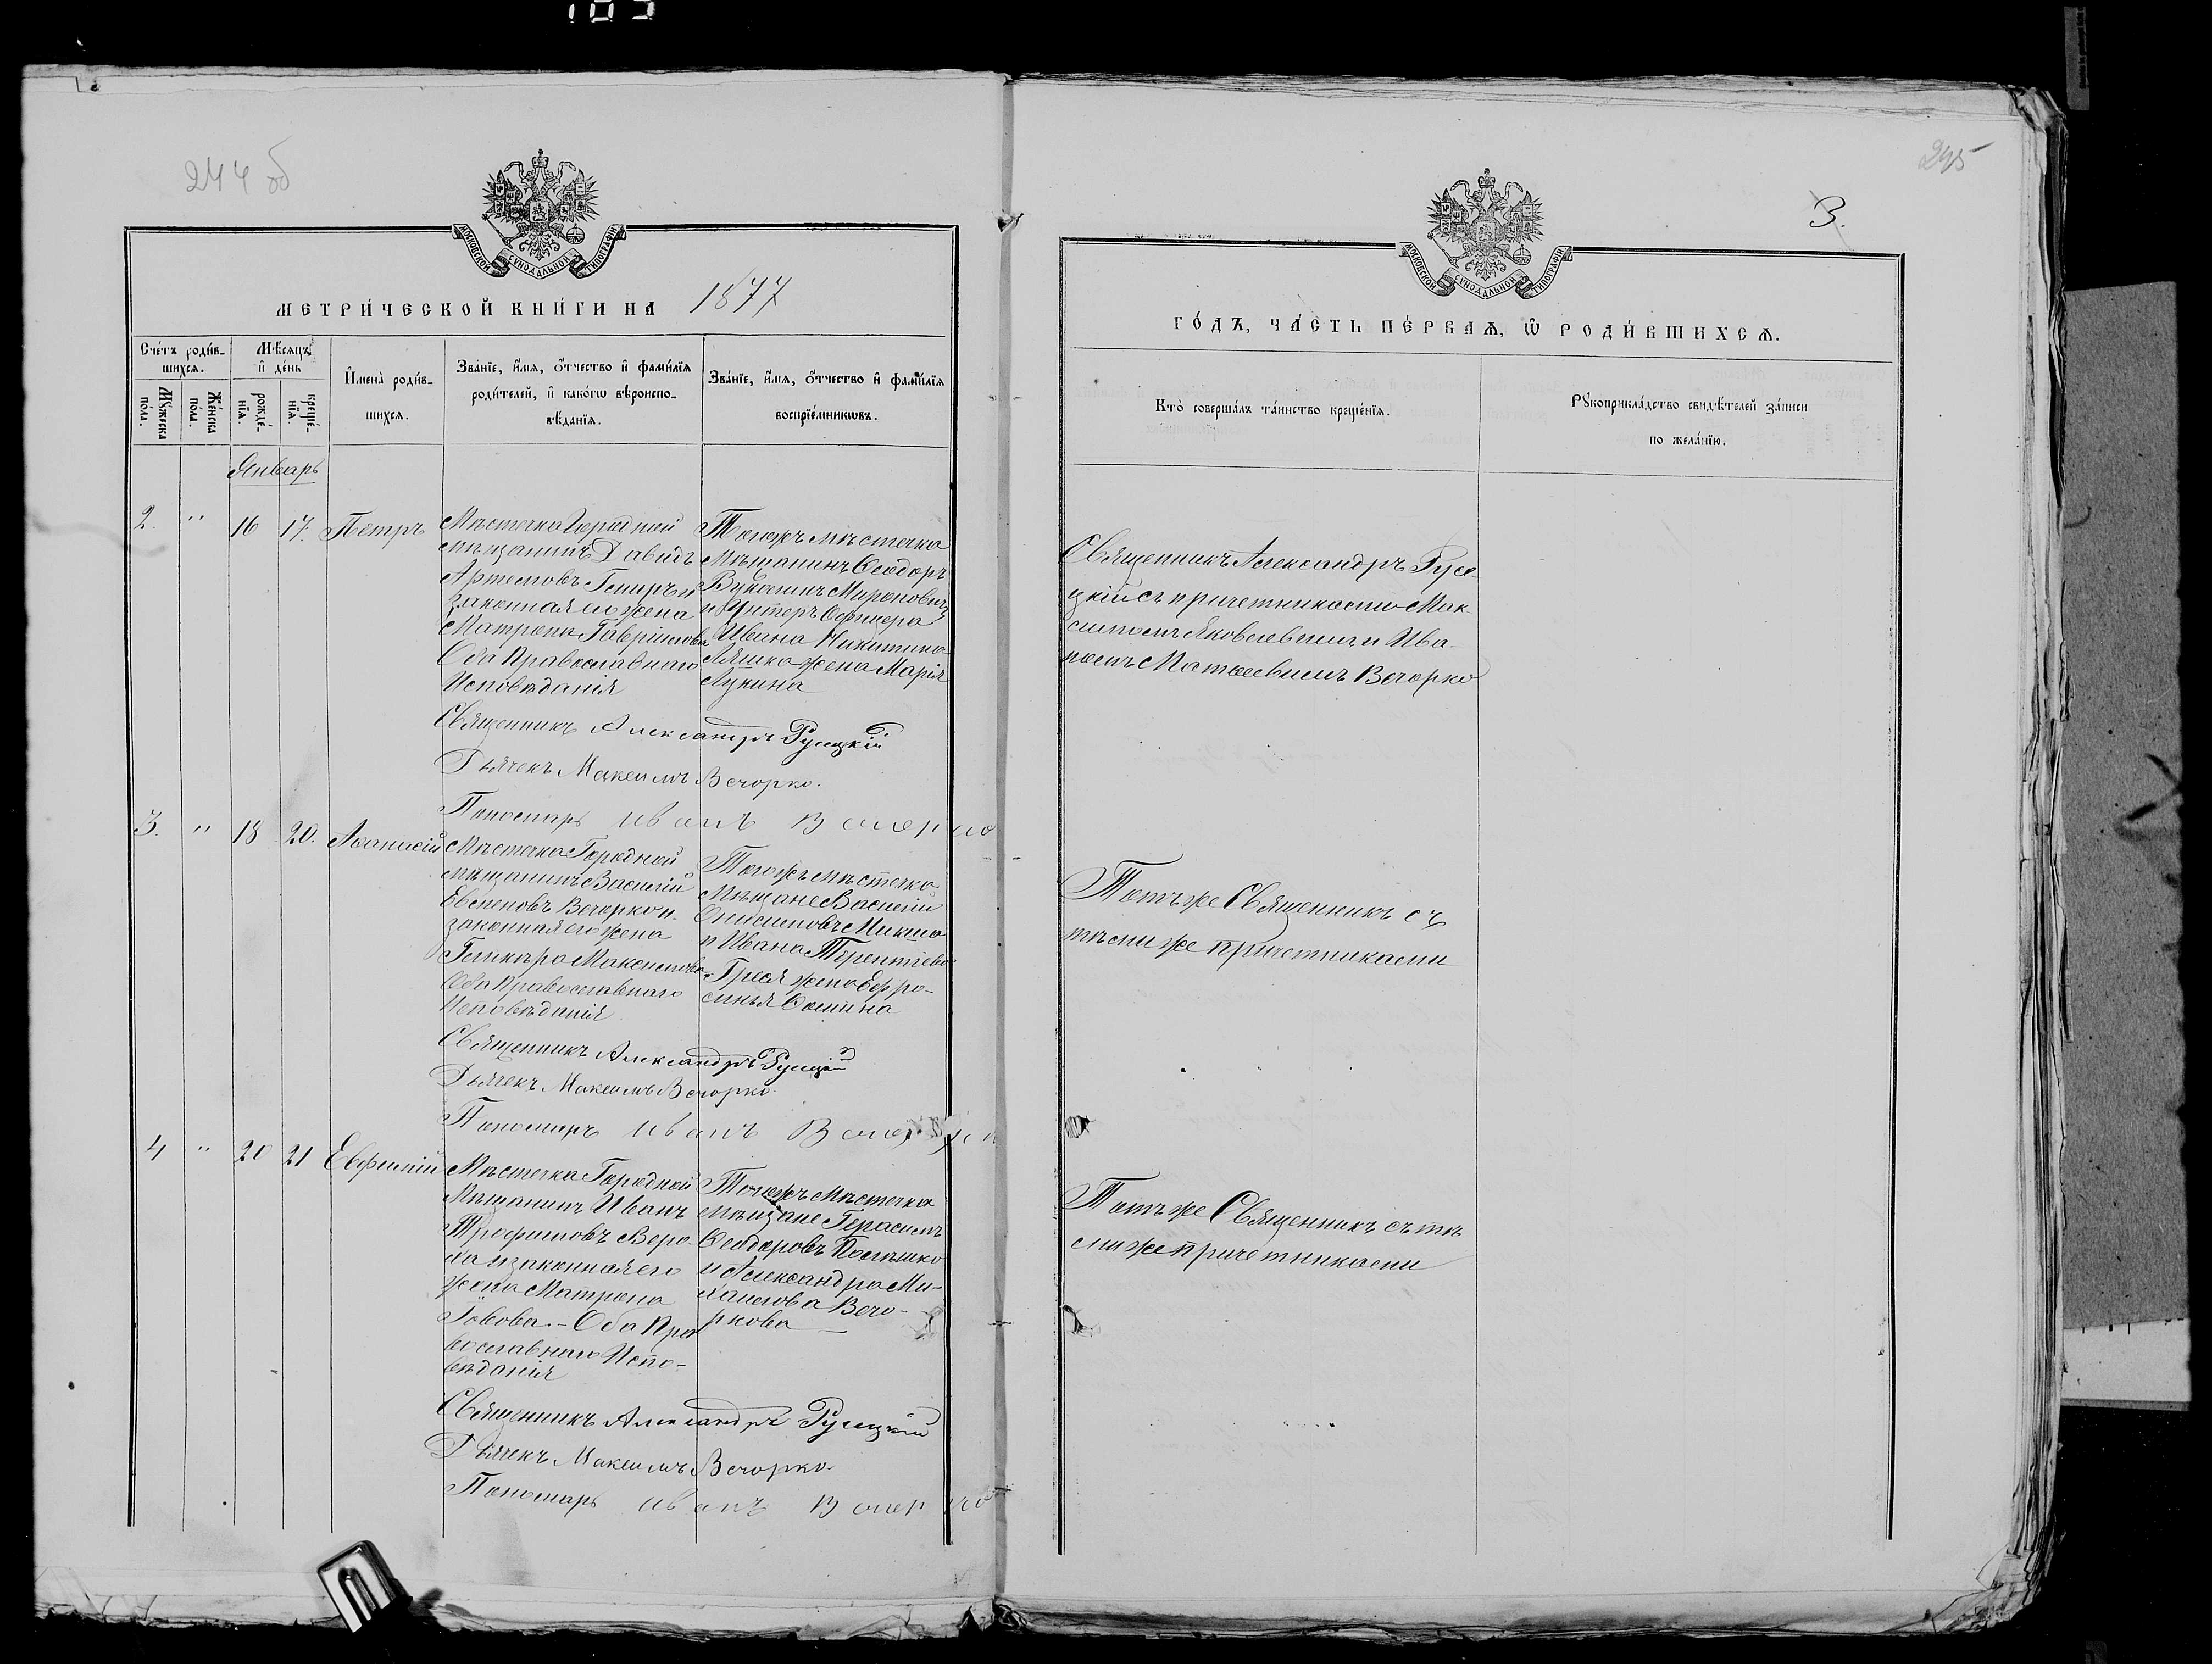 244 об
МОСКОВСКОЙ СУНОДАЛЬНОЙ ТИПОГРАФІИ
МЕТРИ́ЧЕСКОЙ КНИ́ГИ НА 1877
Сче́тъ роди́в-
шихсѧ.
Мꙋ́жеска
по́ла.
Же́нска
по́ла.
Мѣ́сѧцъ
и҆ де́нь
рожде́-
нїѧ.
креще́-
нїѧ.
И҆мена̀ роди́в-
шихсѧ.
Зва́нїе, и҆́мѧ, ѻ҆́тчество и҆ фами́лїѧ
роди́телей, и҆ како́гѡ вѣроиспо-
вѣ́данїѧ.
Зва́нїе, и҆́мѧ, ѻ҆́тчество и҆ фами́лїѧ
воспрїе́мникѡвъ.
Январь
2. " 16 17. Петръ
Мѣстечка Городной
мѣщанинъ Давидъ
Артемовъ
законная его жена
Матрона Гавріилова
Оба Православнаго
Исповѣданія
Тогожъ мѣстечка
Мѣщанинъ Ѳеодоръ
Миронович
и Унтеръ Офицера
Ивана Никитина
Ляшко жена Марія
Лукина
Священникъ Александръ Русецкій
Дьячекъ Максимъ Вечорко.
Пономарь Иванъ Вечерко
3. " 18 20. Аѳанасій
Мѣстечка Городной
мѣщанинъ Василій
Евсеновъ Вечорко и
законная его жена
Гликѣра Максимова
Оба Православнаго
Исповѣданія
Тогожъ мѣстечка
Мѣщане Василій
Онисимовъ Микша
и Ивана Терентіева
жена Ефро-
синья Ѳомина
Священникъ Александръ Русецкій
Дьячекъ Максимъ Вечорко
Пономарь Иванъ Вечерко
4 " 20 21 Евфимій
Мѣстечка Городной
Мѣщанинъ Иванъ
Трофимовъ Веро-
ла и законная его
жена Матрона
Іовова. - Оба Пра
вославнаго Испо-
вѣданія
Тогожъ Мѣстечка
мѣщане Герасимъ
Ѳеодоровъ Полешко
и Александра Ми-
хаилова Вечо-
ркова
Священникъ Александръ Русецкій
Дьячекъ Максимъ Вечорко
Пономарь Иванъ Вечерко
245
3.
МОСКОВСКОЙ СУНОДАЛЬНОЙ ТИПОГРАФІИ
ГО́ДЪ, ЧА́СТЬ ПЕ́РВАѦ, Ѽ РОДИ́ВШИХСѦ.
Кто̀ соверша́лъ та́инство креще́нїѧ.
Рꙋкоприкла́дство свидѣ́телей за́писи
по жела́нїю.
Священникъ Александръ Русе-
цкій съ причетниками Мак
симомъ Яковлевымъ и Ива-
номъ Матѳеевымъ Вечорко
Тотъ же Священникъ съ
тѣми же причетниками
Тотъ же Священникъ съ тѣ
ми же причетниками